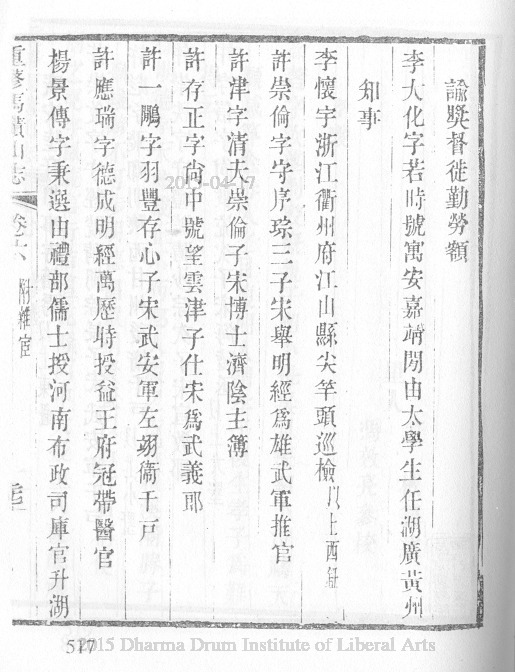 諭獎督徙勤勞額
李大化字若時號寓安嘉靖閒由太學生任湖廣黃州
知事
李懷宇浙江衢州府江山縣尖竿頭巡檢以上西鈕
許崇倫字守序琮三子宋舉明經爲雄武軍推官
許津字清夫崇倫子宋博士濟陰主簿
許存正字尙中號望雲津子仕宋爲武義郎
許一鵬字羽豐存心子宋武安軍左翊衞千戸
許應瑞字德成明經萬歷時授益王府冠帶醫官
楊景傳字秉選由禮部儒士授河南布政司庫官升湖
重修馬蹟山志 卷六 附雜官
2015-04-17
517
©2015 Dharma Drum Institute of Liberal Arts